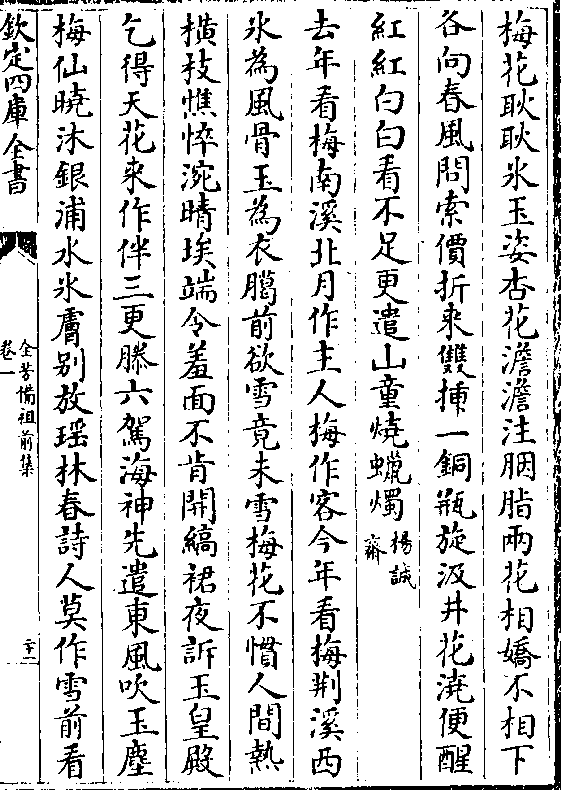 梅花耿耿氷玉姿杏花澹澹注胭脂兩花相嬌不相下
各向春風問索價折來雙揷一銅瓶旋汲井花澆便醒
紅紅白白看不足更遣山童燒蠟燭楊誠齋
去年看梅南溪北月作主人梅作客今年看梅荆溪西
氷為風骨玉為衣臈前欲雪竟未雪梅花不慣人間熱
横枝憔悴涴晴埃端令羞面不肯開縞裙夜訴玉皇殿
乞得天花來作伴三更滕六駕海神先遣東風吹玉塵
梅仙曉沐銀浦水氷膚别放瑶林春詩人莫作雪前看
欽定四庫全書
全芳備祖前集
卷一